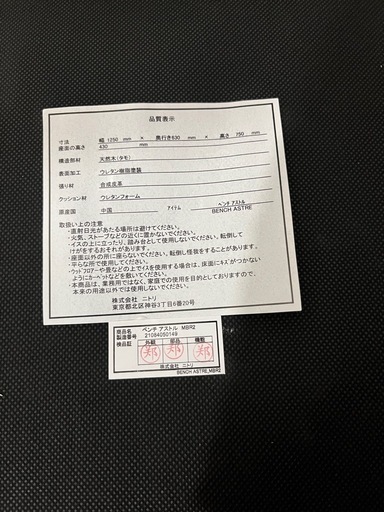 品質表示
寸法 幅 1250 mm × 奥行き630 mm × 高さ 750 mm
座面の高さ 430 mm
構造部材 天然木(タモ)
表面加工 ウレタン樹脂塗装
張り材 合成皮革
クッション材 ウレタンフォーム
原産国 中国 アイテム ベンチ アストル
BENCH ASTRE
取扱い上の注意
・直射日光があたる場所は避けてください。
・火気、ストーブなどの近くに置かないでください。
・イスの上に立ったり、踏み台として使用しないでください。転倒して
けがをするおそれがあります。
・座面以外の所に座らないでください。転倒し怪我をすることがあります。
・平らな所で使用してください。
・ウッドフロアーや畳などの上でイスを使用する場合は、床面にキズがつかない
ようにカーペットなどを敷いてください。
・本商品は、業務用ではなく、家庭での使用を目的としておりますので、
本来の用途以外では使用しないでください。
株式会社 ニトリ
東京都北区神谷3丁目6番20号
商品名 ベンチ アストル MBR2
製造番号 21084050149
検品証 外観 部品 機能
郑 郑 郑
株式会社 ニトリ
BENCH ASTRE_MBR2